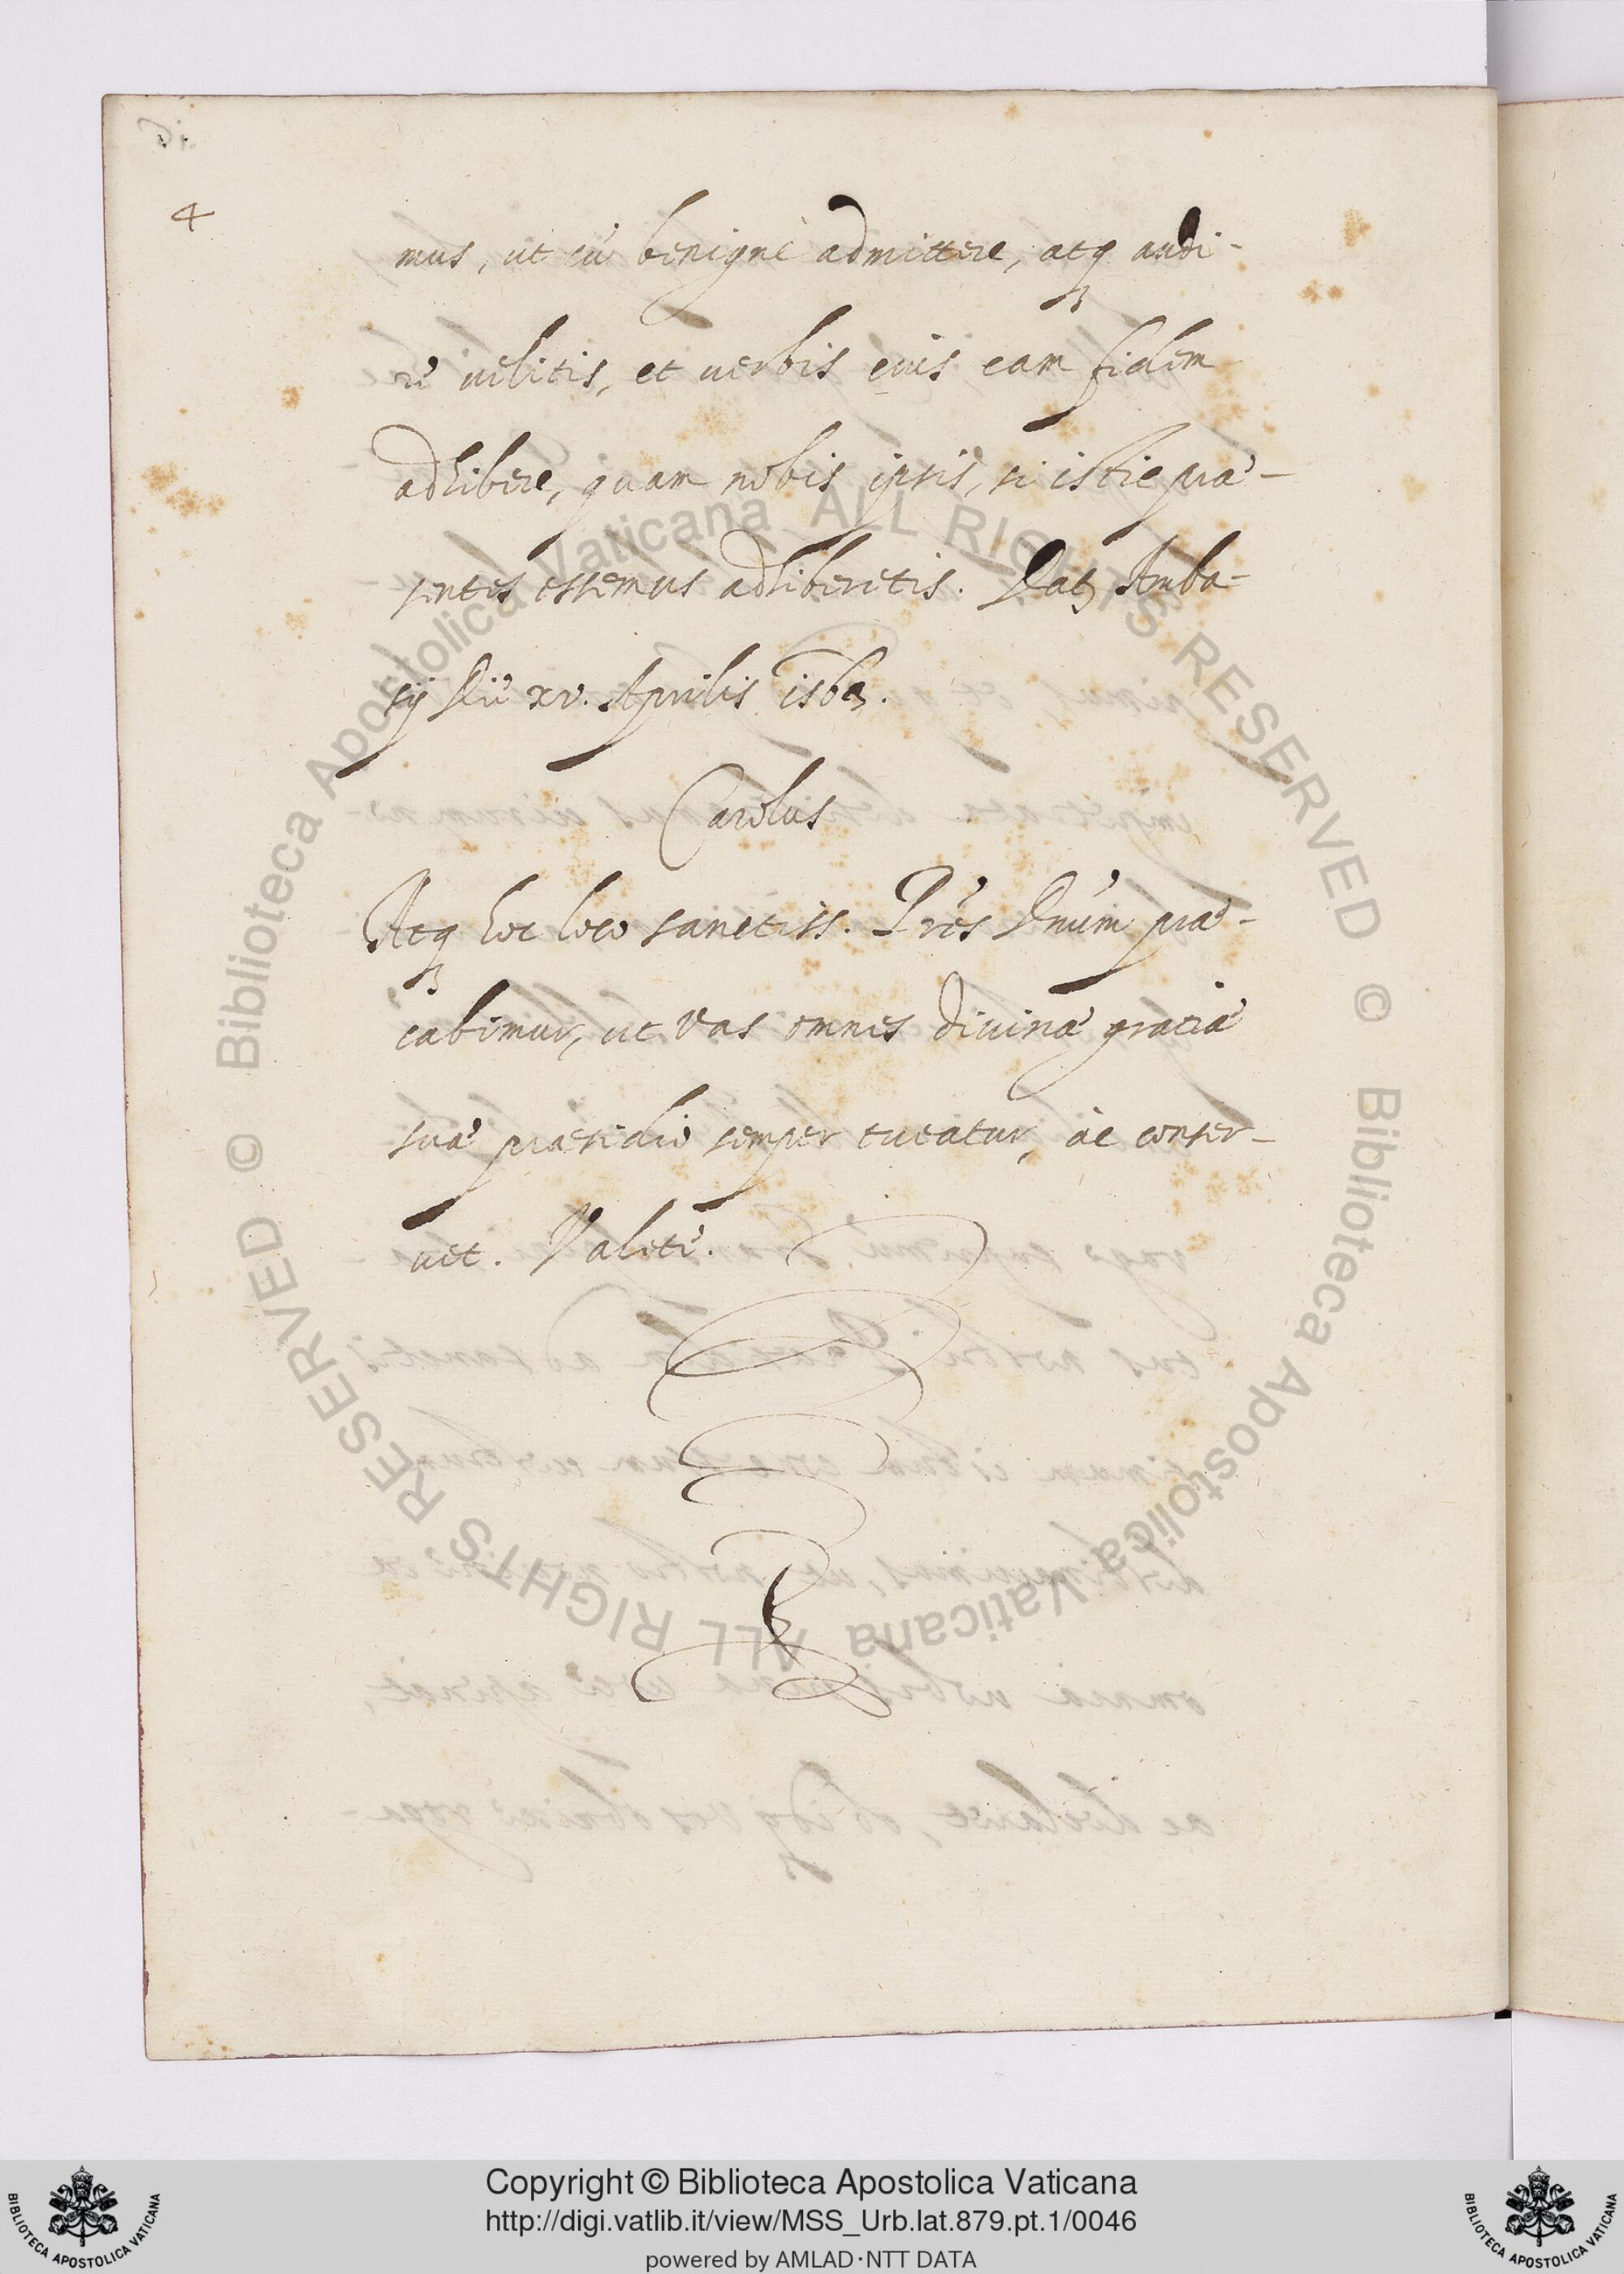 4
mus, ut eũ benignè admittere, atq₃ audi-
re uelitis, et uerbis eius eam fidem
adhibere, quam nobis ipsis, si istic præ-
sentes essemus adhiberetis. Dat₃ Amba-
sij Die xv. Aprilis
Carolus
Atq₃ hoc loco sanctiss. P̃res Dñum præ-
cabimur, ut vos omnes diuinæ gratiæ
suæ præsidio semper tueatur, ac conser-
uet. Valete.
© Biblioteca Apostolica Vaticana ALL RIGHTS RESERVED
© Biblioteca Apostolica Vaticana ALL RIGHTS RESERVED
Copyright © Biblioteca Apostolica Vaticana
http://digi.vatlib.it/view/MSS_Urb.lat.879.pt.1/0046
powered by AMLAD·NTT DATA
BIBLIOTECA APOSTOLICA VATICANA
BIBLIOTECA APOSTOLICA VATICANA